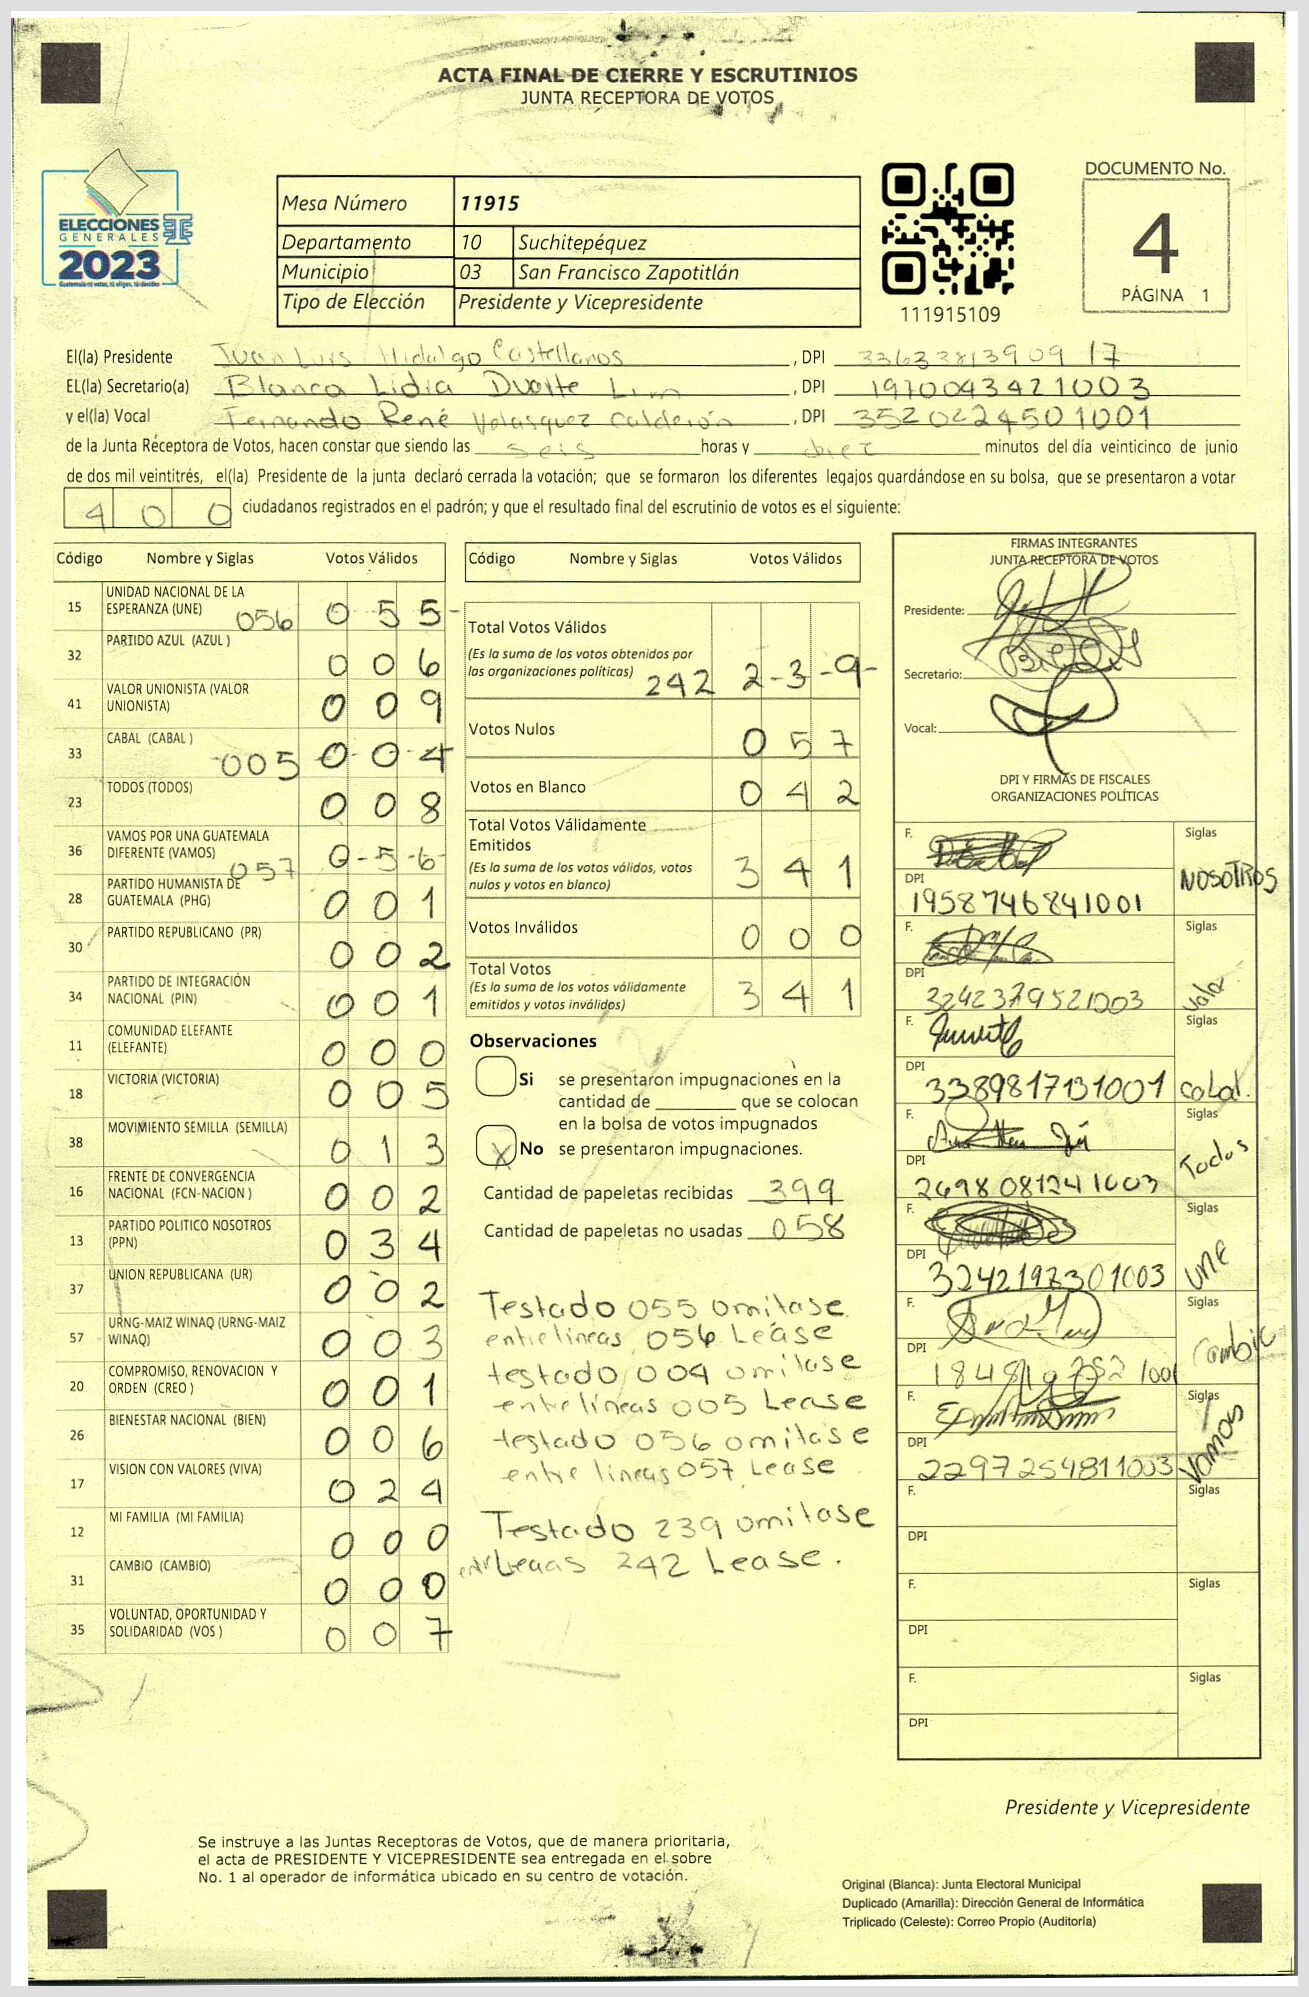 ACTA FINAL DE CIERRE Y ESCRUTINIOS
JUNTA RECEPTORA DE VOTOS
ELECCIONES
GENERALES
2023
Guatemala tú votas, tú eliges, tú decides
Mesa Número 11915
Departamento 10 Suchitepéquez
Municipio 03 San Francisco Zapotitlán
Tipo de Elección Presidente y Vicepresidente
111915109
DOCUMENTO No.
4
PÁGINA 1
El(la) Presidente Juan Luis Hidalgo Castellanos, DPI
EL(la) Secretario(a) Blanca Lidia Duarte Lim, DPI 1970043421003
y el(la) Vocal Fernando René Velasquez Calderón, DPI 3520224501001
de la Junta Receptora de Votos, hacen constar que siendo las seis horas y diez minutos del día veinticinco de junio
de dos mil veintitrés, el(la) Presidente de la junta declaró cerrada la votación; que se formaron los diferentes legajos quardándose en su bolsa, que se presentaron a votar
400 ciudadanos registrados en el padrón; y que el resultado final del escrutinio de votos es el siguiente:
Código Nombre y Siglas Votos Válidos
15 UNIDAD NACIONAL DE LA
ESPERANZA (UNE) 056 0 5 5
32 PARTIDO AZUL (AZUL ) 0 0 6
41 VALOR UNIONISTA (VALOR
UNIONISTA) 0 0 9
33 CABAL (CABAL ) 005 0 0 4
23 TODOS (TODOS) 0 0 8
36 VAMOS POR UNA GUATEMALA
DIFERENTE (VAMOS) 057 0-5-6
28 PARTIDO HUMANISTA DE
GUATEMALA (PHG) 0 0 1
30 PARTIDO REPUBLICANO (PR) 0 0 2
34 PARTIDO DE INTEGRACIÓN
NACIONAL (PIN) 0 0 1
11 COMUNIDAD ELEFANTE
(ELEFANTE) 0 0 0
18 VICTORIA (VICTORIA) 0 0 5
38 MOVIMIENTO SEMILLA (SEMILLA) 0 1 3
16 FRENTE DE CONVERGENCIA
NACIONAL (FCN-NACION ) 0 0 2
13 PARTIDO POLITICO NOSOTROS
(PPN) 0 3 4
37 UNION REPUBLICANA (UR) 0 0 2
57 URNG-MAIZ WINAQ (URNG-MAIZ
WINAQ) 0 0 3
20 COMPROMISO, RENOVACION Y
ORDEN (CREO ) 0 0 1
26 BIENESTAR NACIONAL (BIEN) 0 0 6
17 VISION CON VALORES (VIVA) 0 2 4
12 MI FAMILIA (MI FAMILIA) 0 0 0
31 CAMBIO (CAMBIO) 0 0 0
35 VOLUNTAD, OPORTUNIDAD Y
SOLIDARIDAD (VOS ) 0 0 7
Código Nombre y Siglas Votos Válidos
Total Votos Válidos
(Es la suma de los votos obtenidos por
las organizaciones políticas) 242 2-3-9-
Votos Nulos 0 5 7
Votos en Blanco 0 4 2
Total Votos Válidamente
Emitidos
(Es la suma de los votos válidos, votos
nulos y votos en blanco) 3 4 1
Votos Inválidos 0 0 0
Total Votos
(Es la suma de los votos válidamente
emitidos y votos inválidos) 3 4 1
Observaciones
Si se presentaron impugnaciones en la
cantidad de ________ que se colocan
en la bolsa de votos impugnados
X No se presentaron impugnaciones.
Cantidad de papeletas recibidas 399
Cantidad de papeletas no usadas 058
Testado 055 omitase
entrelineas 056 Lease
testado 004 omitase
entrelíneas 005 Lease
testado 056 omitase
entre lineas 057 Lease
Testado 239 omitase
242 Lease.
FIRMAS INTEGRANTES
JUNTA RECEPTORA DE VOTOS
Presidente:
Secretario:
Vocal:
DPI Y FIRMAS DE FISCALES
ORGANIZACIONES POLÍTICAS
F. Siglas
DPI NOSOTROS
1958746841001
F. Siglas
DPI Valor
3242379521003
F. Siglas
DPI
3389817131001 cabal.
F. Siglas
DPI Todos
2698081241003
F. Siglas
DPI UNE
3242197301003
F. Siglas
DPI Cambio
F. Siglas
DPI VAMOS
2297254811003
F. Siglas
DPI
F. Siglas
DPI
F. Siglas
DPI
Presidente y Vicepresidente
Se instruye a las Juntas Receptoras de Votos, que de manera prioritaria,
el acta de PRESIDENTE Y VICEPRESIDENTE sea entregada en el sobre
No. 1 al operador de informática ubicado en su centro de votación.
Original (Blanca): Junta Electoral Municipal
Duplicado (Amarilla): Dirección General de Informática
Triplicado (Celeste): Correo Propio (Auditoría)